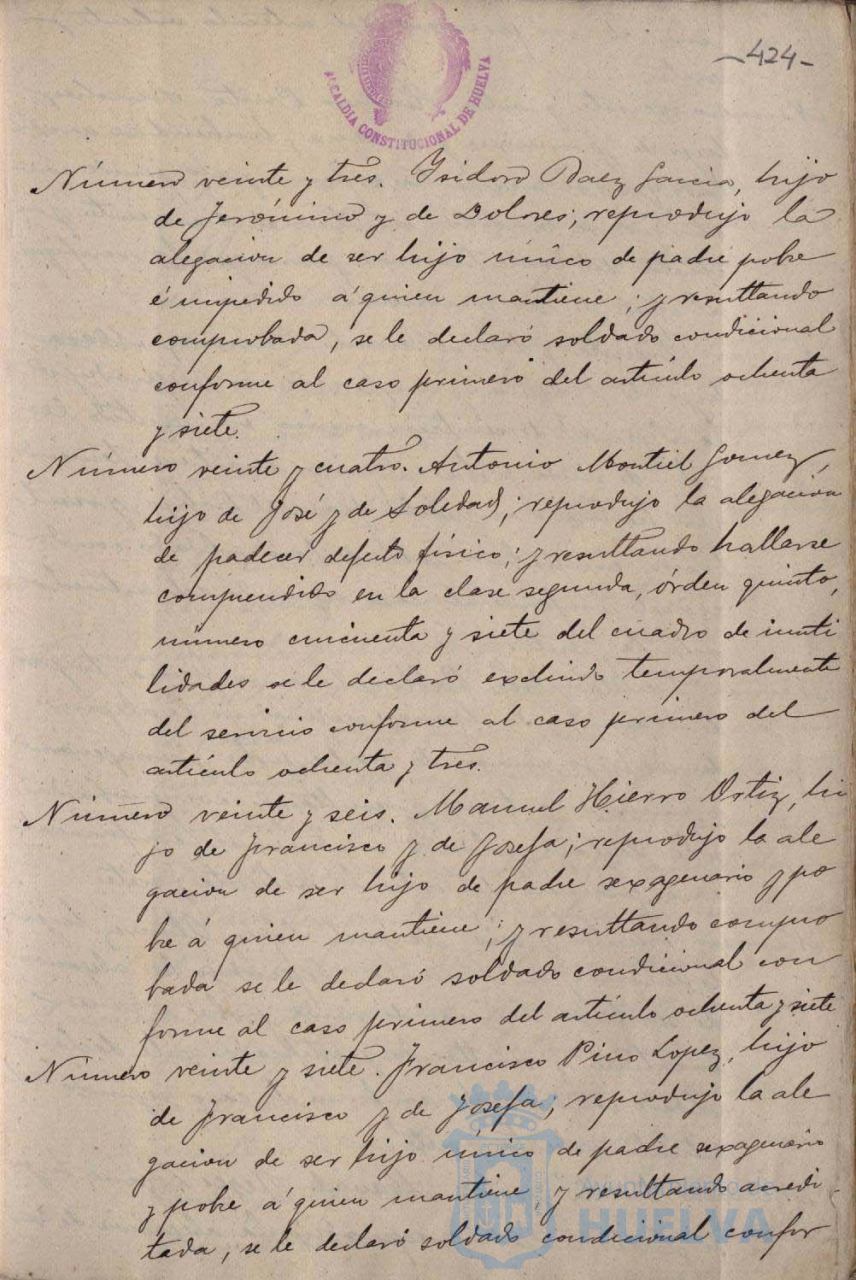 -424-
ALCALDIA CONSTITUCIONAL DE HUELVA
Número veinte y tres. Ysidoro Baez Garcia, hijo
de Jerónimo y de Dolores; reprodujo la
alegacion de ser hijo único de padre pobre
é impedido á quien mantiene; y resultando
comprobada, se le declaró soldado condicional
conforme al caso primero del artículo ochenta
y siete.
Número veinte y cuatro. Antonio Montiel Gomez,
hijo de José y de Soledad; reprodujo la alegacion
de padecer defecto físico; y resultando hallarse
comprendido en la clase segunda, órden quinto,
número cincuenta y siete del cuadro de inuti
lidades se le declaró excluido temporalmente
del servicio conforme al caso primero del
artículo ochenta y tres.
Número veinte y seis. Manuel Hierro Ortiz, hi
jo de Francisco y de Josefa; reprodujo la ale
gacion de ser hijo de padre sexagenario y po
bre á quien mantiene; y resultando compro
bada se le declaró soldado condicional con
forme al caso primero del artículo ochenta y siete
Número veinte y siete. Francisco Pino Lopez, hijo
de Francisco y de Josefa; reprodujo la ale
gacion de ser hijo único de padre sexagenario
y pobre á quien mantiene y resultando acredi
tada, se le declaró soldado condicional confor
Ayuntamiento de
HUELVA